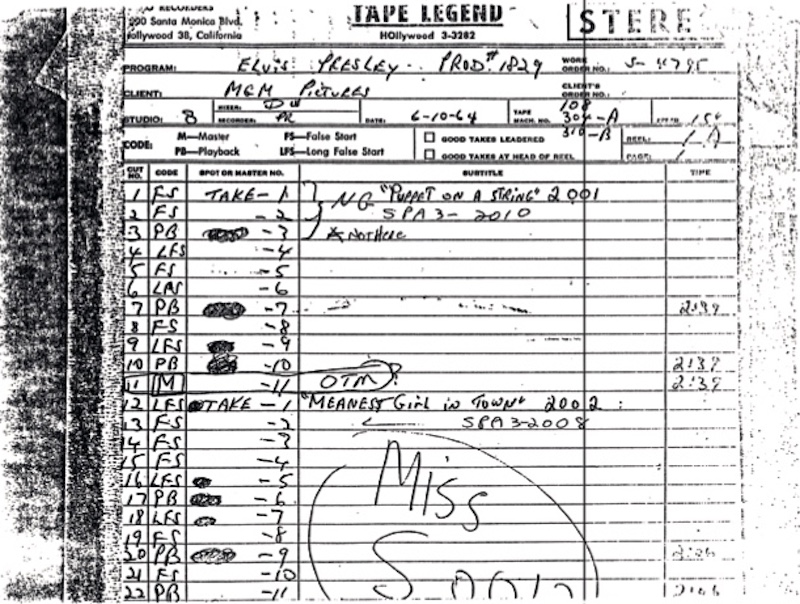 RECORDERS
Santa Monica Blvd.
ollywood 38, California
TAPE LEGEND
HOllywood 3-3282
STERE
PROGRAM: ELVIS PRESLEY - PROD.# 1829
WORK ORDER NO.:
CLIENT: MGM PICTURES
CLIENT'S ORDER NO.:
STUDIO: 8
MIXER:
RECORDER: PR
DATE: 6-10-64
TAPE MACH. NO. 108
304-A
310-B
REEL: 1A
PAGE: 1
CODE:
M—Master
FS—False Start
PB—Playback
LFS—Long False Start
GOOD TAKES LEADERED
GOOD TAKES AT HEAD OF REEL
CUT NO. CODE SPOT OR MASTER NO. SUBTITLE TIME
1 FS TAKE - 1 NG "PUPPET ON A STRING" 2001
2 FS - 2 SPA3-2010
3 PB - 3 NOT HERE
4 LFS - 4
5 FS - 5
6 - 6
7 PB - 7 2:39
8 FS - 8
9 LFS - 9
10 PB - 10 2:39
11 M - 11 OTM 2:39
12 LFS TAKE - 1 "MEANEST GIRL IN TOWN" 2002
13 FS - 2 SPA3-2008
14 FS - 3
15 FS - 4
16 LFS - 5
17 PB - 6
18 LFS - 7
19 FS - 8
20 PB - 9 2:06
21 FS - 10
22 PB - 11 2:06
MISS